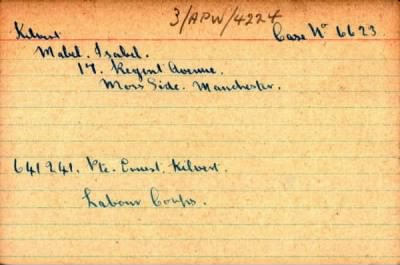 3/APW/4224
Kilvert Case No 6623.
Mabel. Isabel.
17. Regent Avenue.
Moss Side. Manchester.
641241. Pte. Ernest. Kilvert.
Labour Corps.